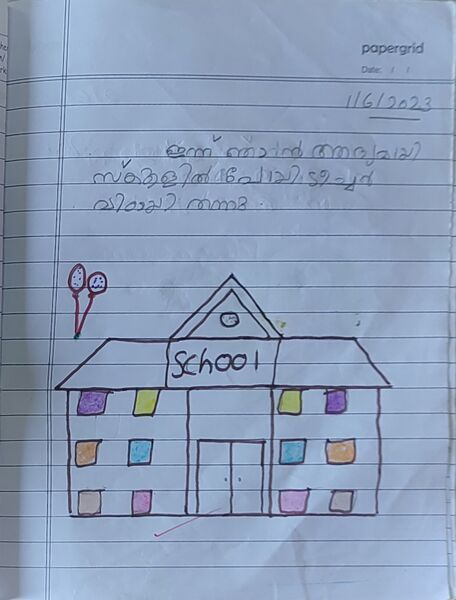 papergrid
Date: / /
1/6/2023
ഇന്ന് ഞാൻ ആദ്യമായി
സ്കൂളിൽ പോയി ടീച്ചർ
മിഠായി തന്നു.
School